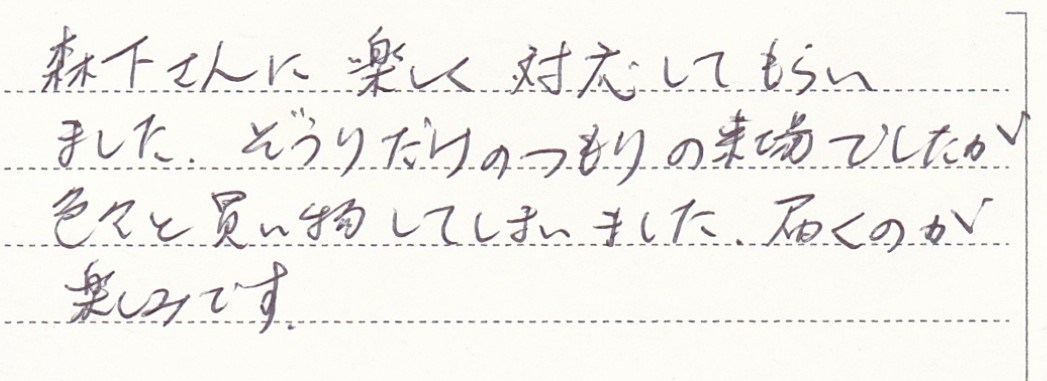 森下さんに 楽しく 対応してもらい
ました. ぞうりだけのつもりの来場でしたが
色々と買い物してしまいました. 届くのが
楽しみです.